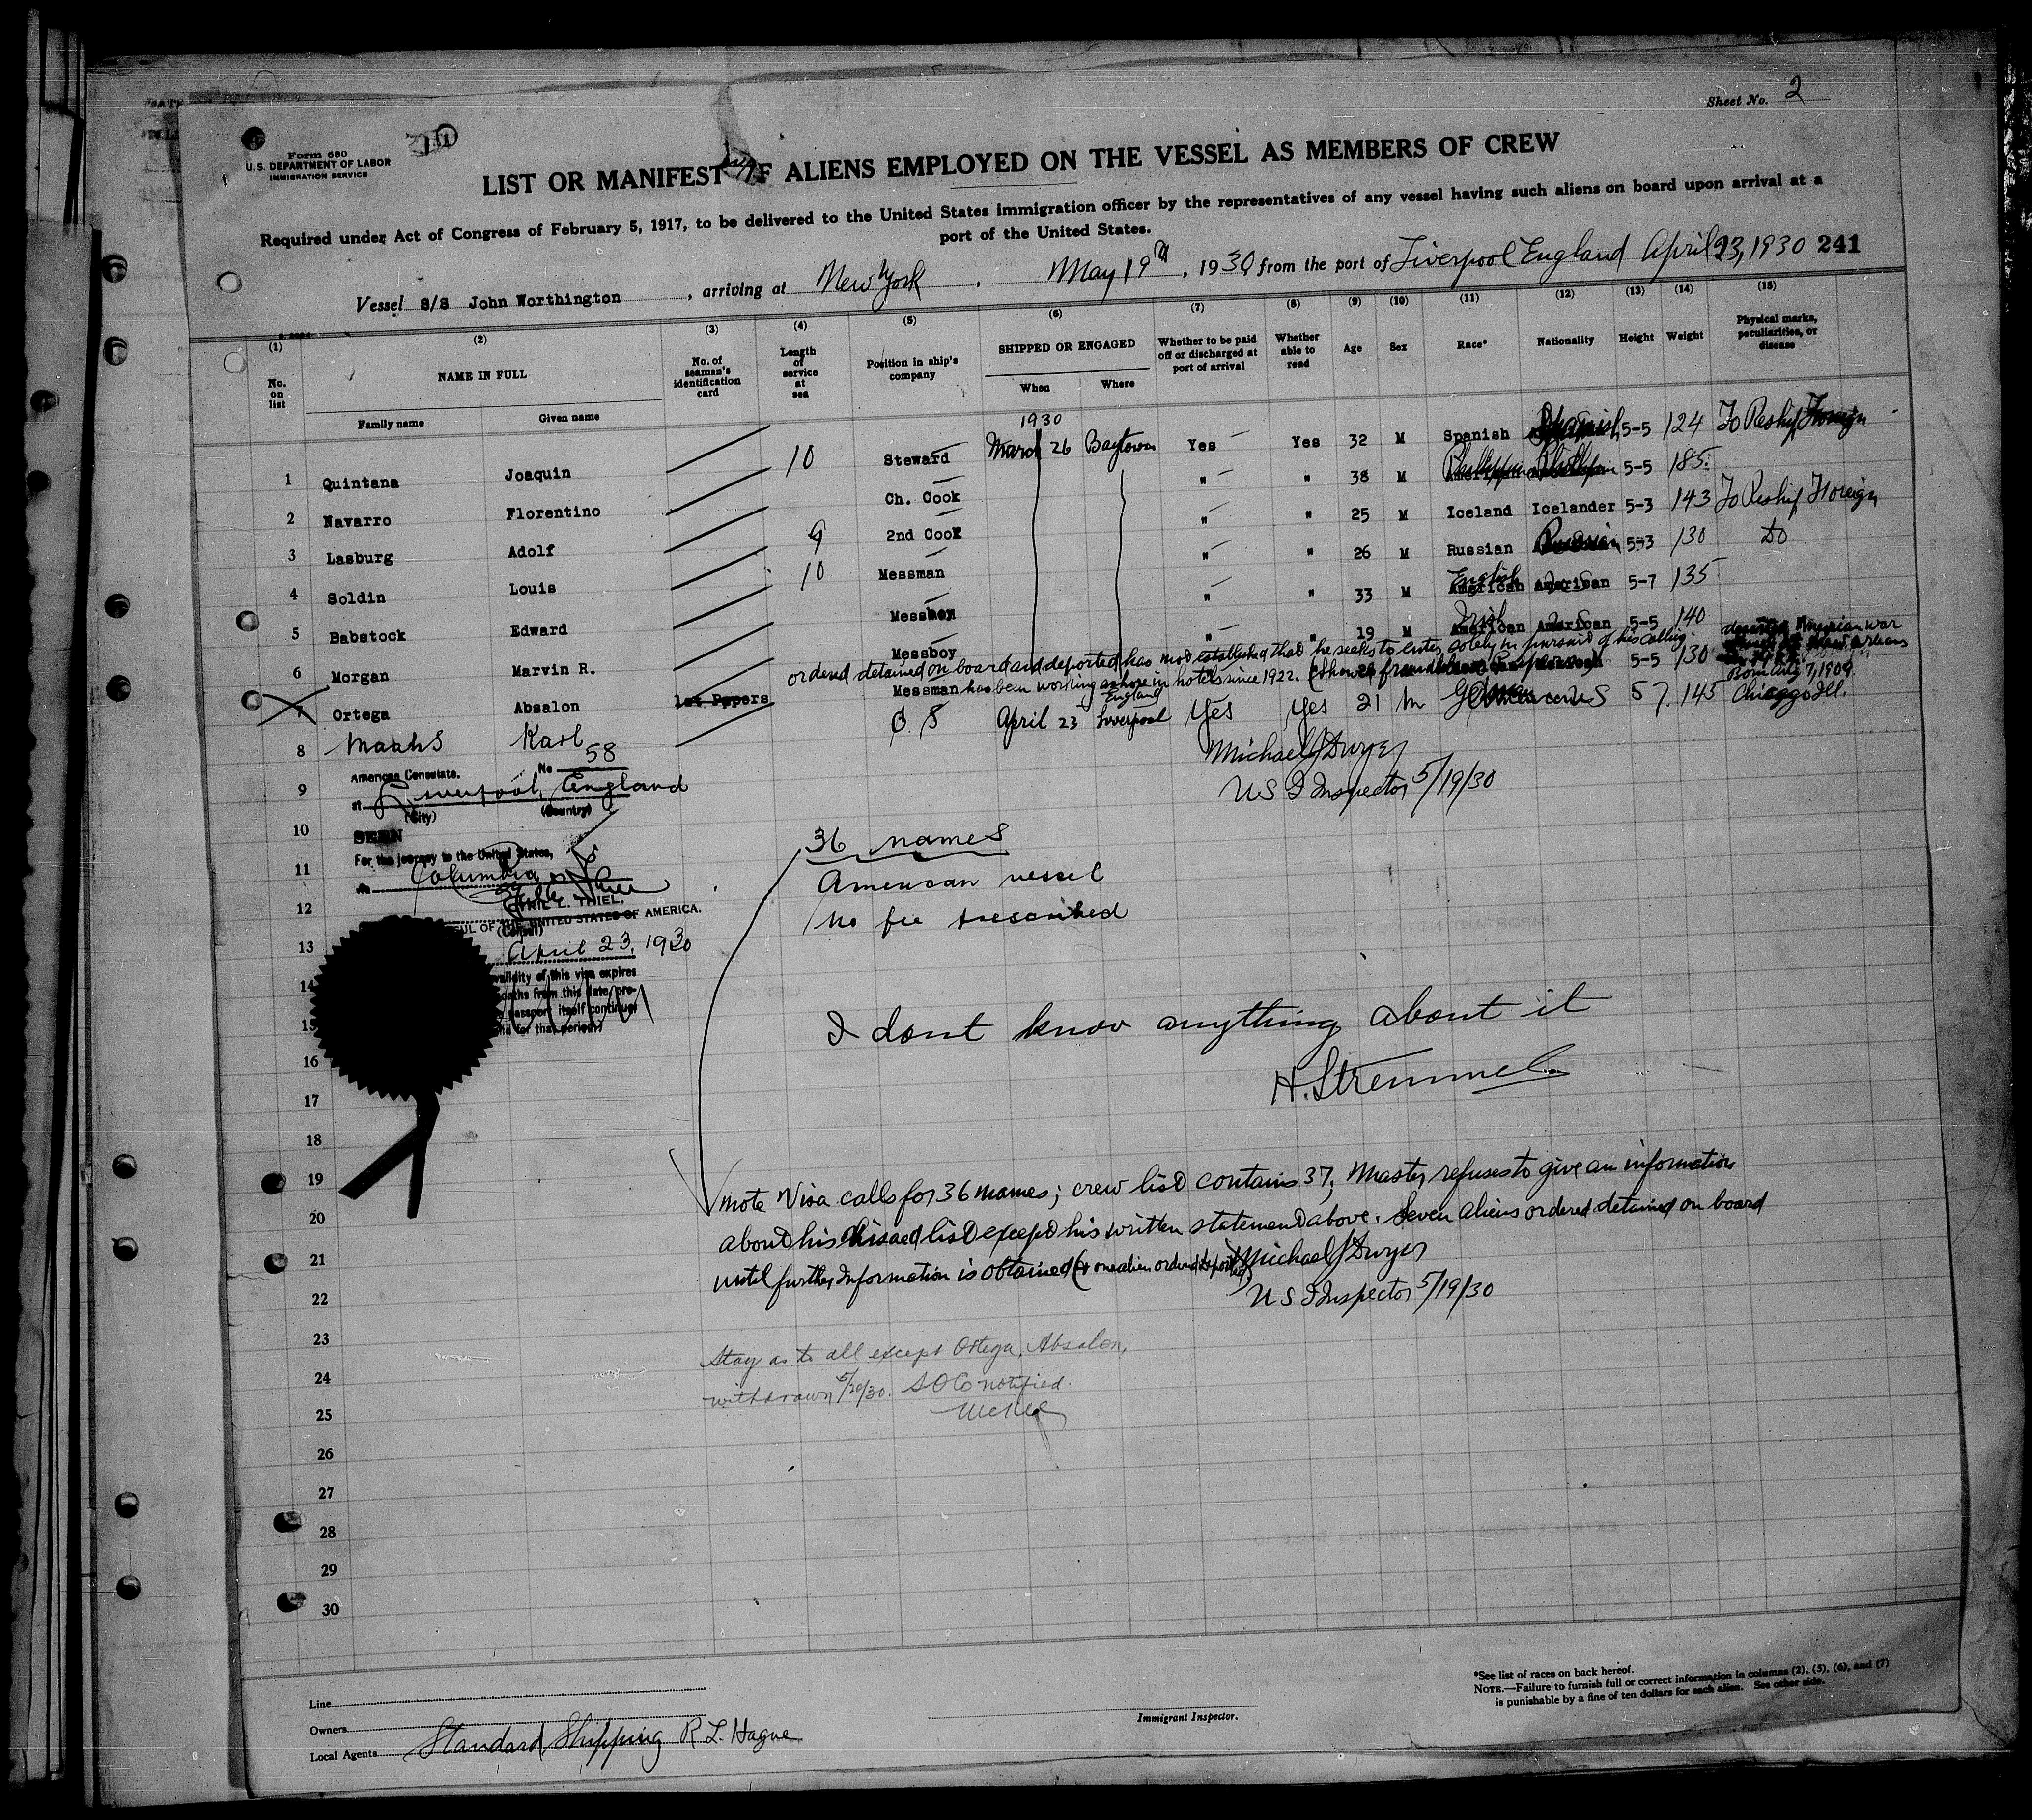 Sheet No. 2
Form 680
U.S. DEPARTMENT OF LABOR
IMMIGRATION SERVICE
LIST OR MANIFEST OF ALIENS EMPLOYED ON THE VESSEL AS MEMBERS OF CREW
Required under Act of Congress of February 5, 1917, to be delivered to the United States immigration officer by the representatives of any vessel having such aliens on board upon arrival at a
port of the United States.
Vessel S/S John Worthington, arriving at New York, May 19th, 1930 from the port of Liverpool England April 23, 1930 241
(1) (2) (3) (4) (5) (6) (7) (8) (9) (10) (11) (12) (13) (14) (15)
No. on list NAME IN FULL No. of seaman's identification card Length of service at sea Position in ship's company SHIPPED OR ENGAGED Whether to be paid off or discharged at port of arrival Whether able to read Age Sex Race* Nationality Height Weight Physical marks, peculiarities, or disease
Family name Given name When Where
1930
1 Quintana Joaquin 10 Steward March 26 Baytown Yes Yes 32 M Spanish Spanish 5-5 124 To Reship Foreign
2 Navarro Florentino Ch. Cook " " 38 M 5-5 185
3 Lasburg Adolf 9 2nd Cook " " 25 M Iceland Icelander 5-3 143 To Reship Foreign
4 Soldin Louis 10 Messman " " 26 M Russian Russian 5-3 130 Do
5 Babstock Edward Messboy " " 33 M English American American 5-7 135
6 Morgan Marvin R. Messboy " " 19 M Irish American American 5-5 140
ordered detained on board and deported has not established that he seeks to enter solely in pursuit of his calling.
7 Ortega Absalon 1st Papers Messman has been working ashore in hotels since 1922. 5-5 130
8 Maahs Karl O S April 23 England Liverpool Yes Yes 21 M German U S 5 7 145 Born Aug 7, 1909 Chicago Ill.
Michael J Dwyer
U S I Inspector 5/19/30
American Consulate, No 58
9 at Liverpool, England
(City) (Country)
10 SEEN
11 For the journey to the United States,
36 names
American vessel
No fee prescribed
12 CYRIL L. THIEL,
CONSUL OF THE UNITED STATES OF AMERICA.
(Consul)
13 April 23, 1930
14 validity of this visa expires
months from this date, pre-
15 passport itself continues
valid for that period)
I dont know anything about it
H. Stremmel
16
17
18
19
Note Visa calls for 36 names; crew list contains 37; Master refuses to give an information
20
about his visaed list except his written statement above. Seven aliens ordered detained on board
21
until further information is obtained (& one alien ordered deported) Michael J Dwyer
22
U S I Inspector 5/19/30
23
Stay as to all except Ortega, Absalon,
24
withdrawn 5/20/30. S O Co notified.
25
26
27
28
29
30
*See list of races on back hereof.
NOTE.—Failure to furnish full or correct information in columns (2), (5), (6), and (7)
is punishable by a fine of ten dollars for each alien. See other side.
Line
Owners
Local Agents Standard Shipping R L. Hague
Immigrant Inspector.